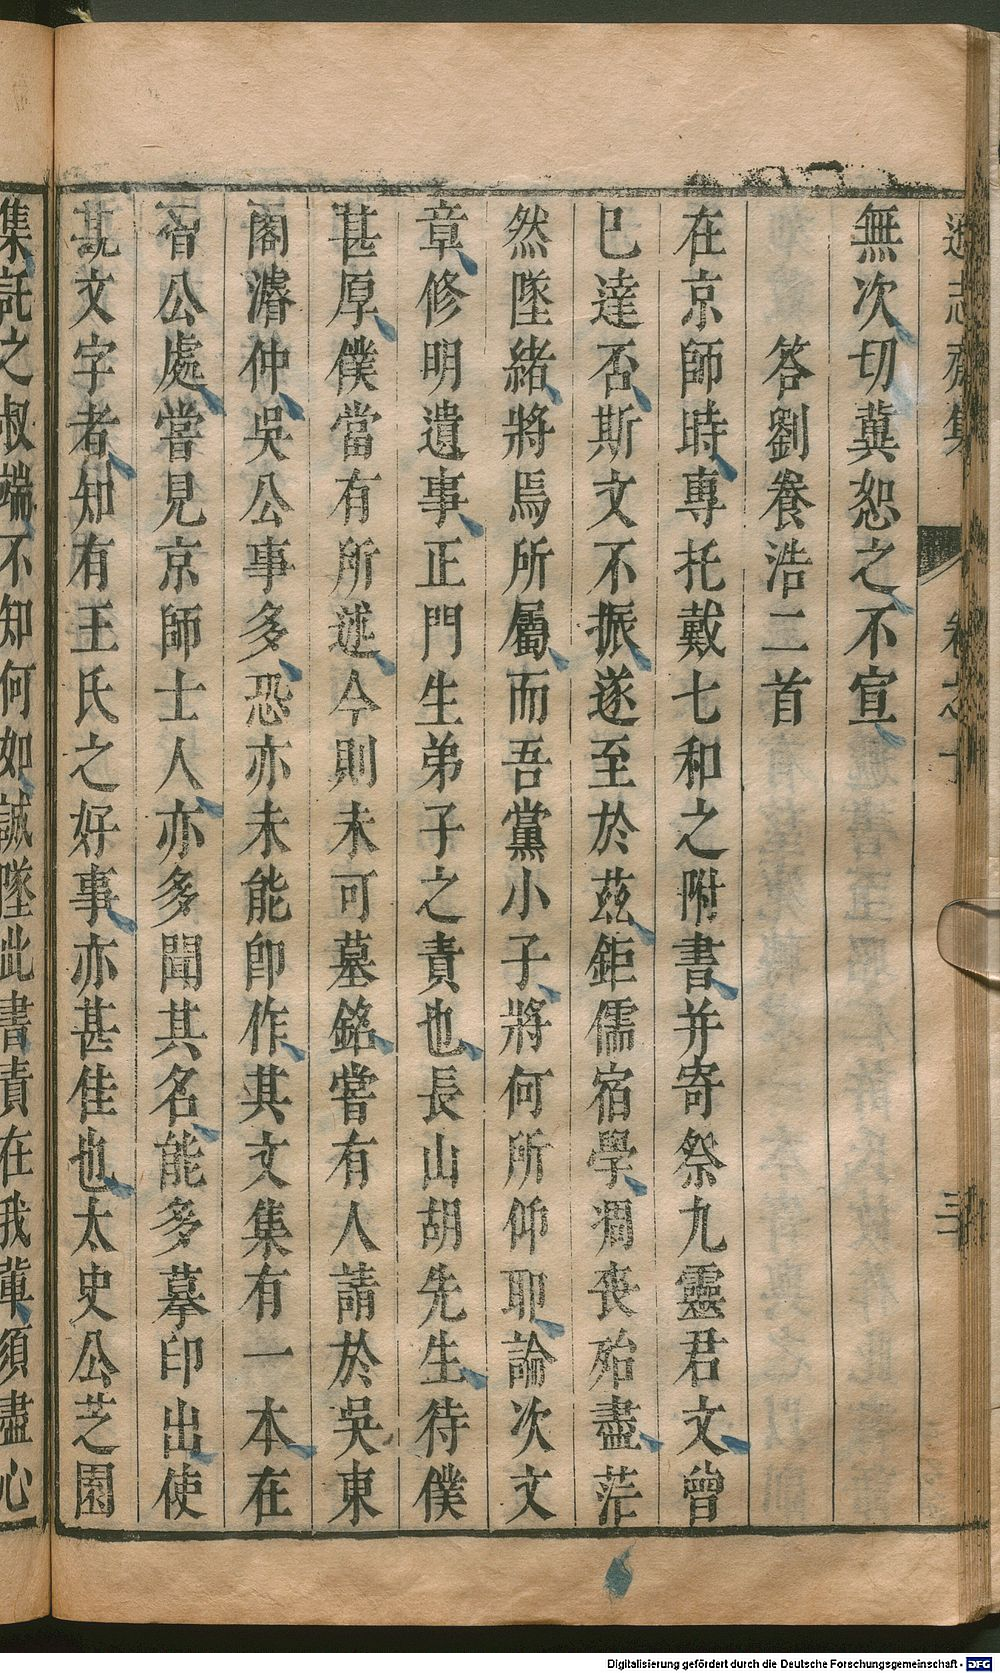 遜志齋集 卷之十 三
無次切冀恕之不宣
答劉養浩二首
在京師時專托戴七和之附書并寄祭九靈君文曾
已達否斯文不振遂至於茲鉅儒宿學凋喪殆盡茫
然墜緒將焉所屬而吾黨小子將何所仰耶論次文
章修明遺事正門生弟子之責也長山胡先生待僕
甚厚僕當有所述今則未可墓銘嘗有人請於吳東
閣濬仲吳公事多恐亦未能即作其文集有一本在
公處嘗見京師士人亦多聞其名能多摹印出使
文字者知有王氏之好事亦甚佳也太史公芝園
集託之叔端不知何如誠墜此書責在我輩須盡心
Digitalisierung gefördert durch die Deutsche Forschungsgemeinschaft - DFG